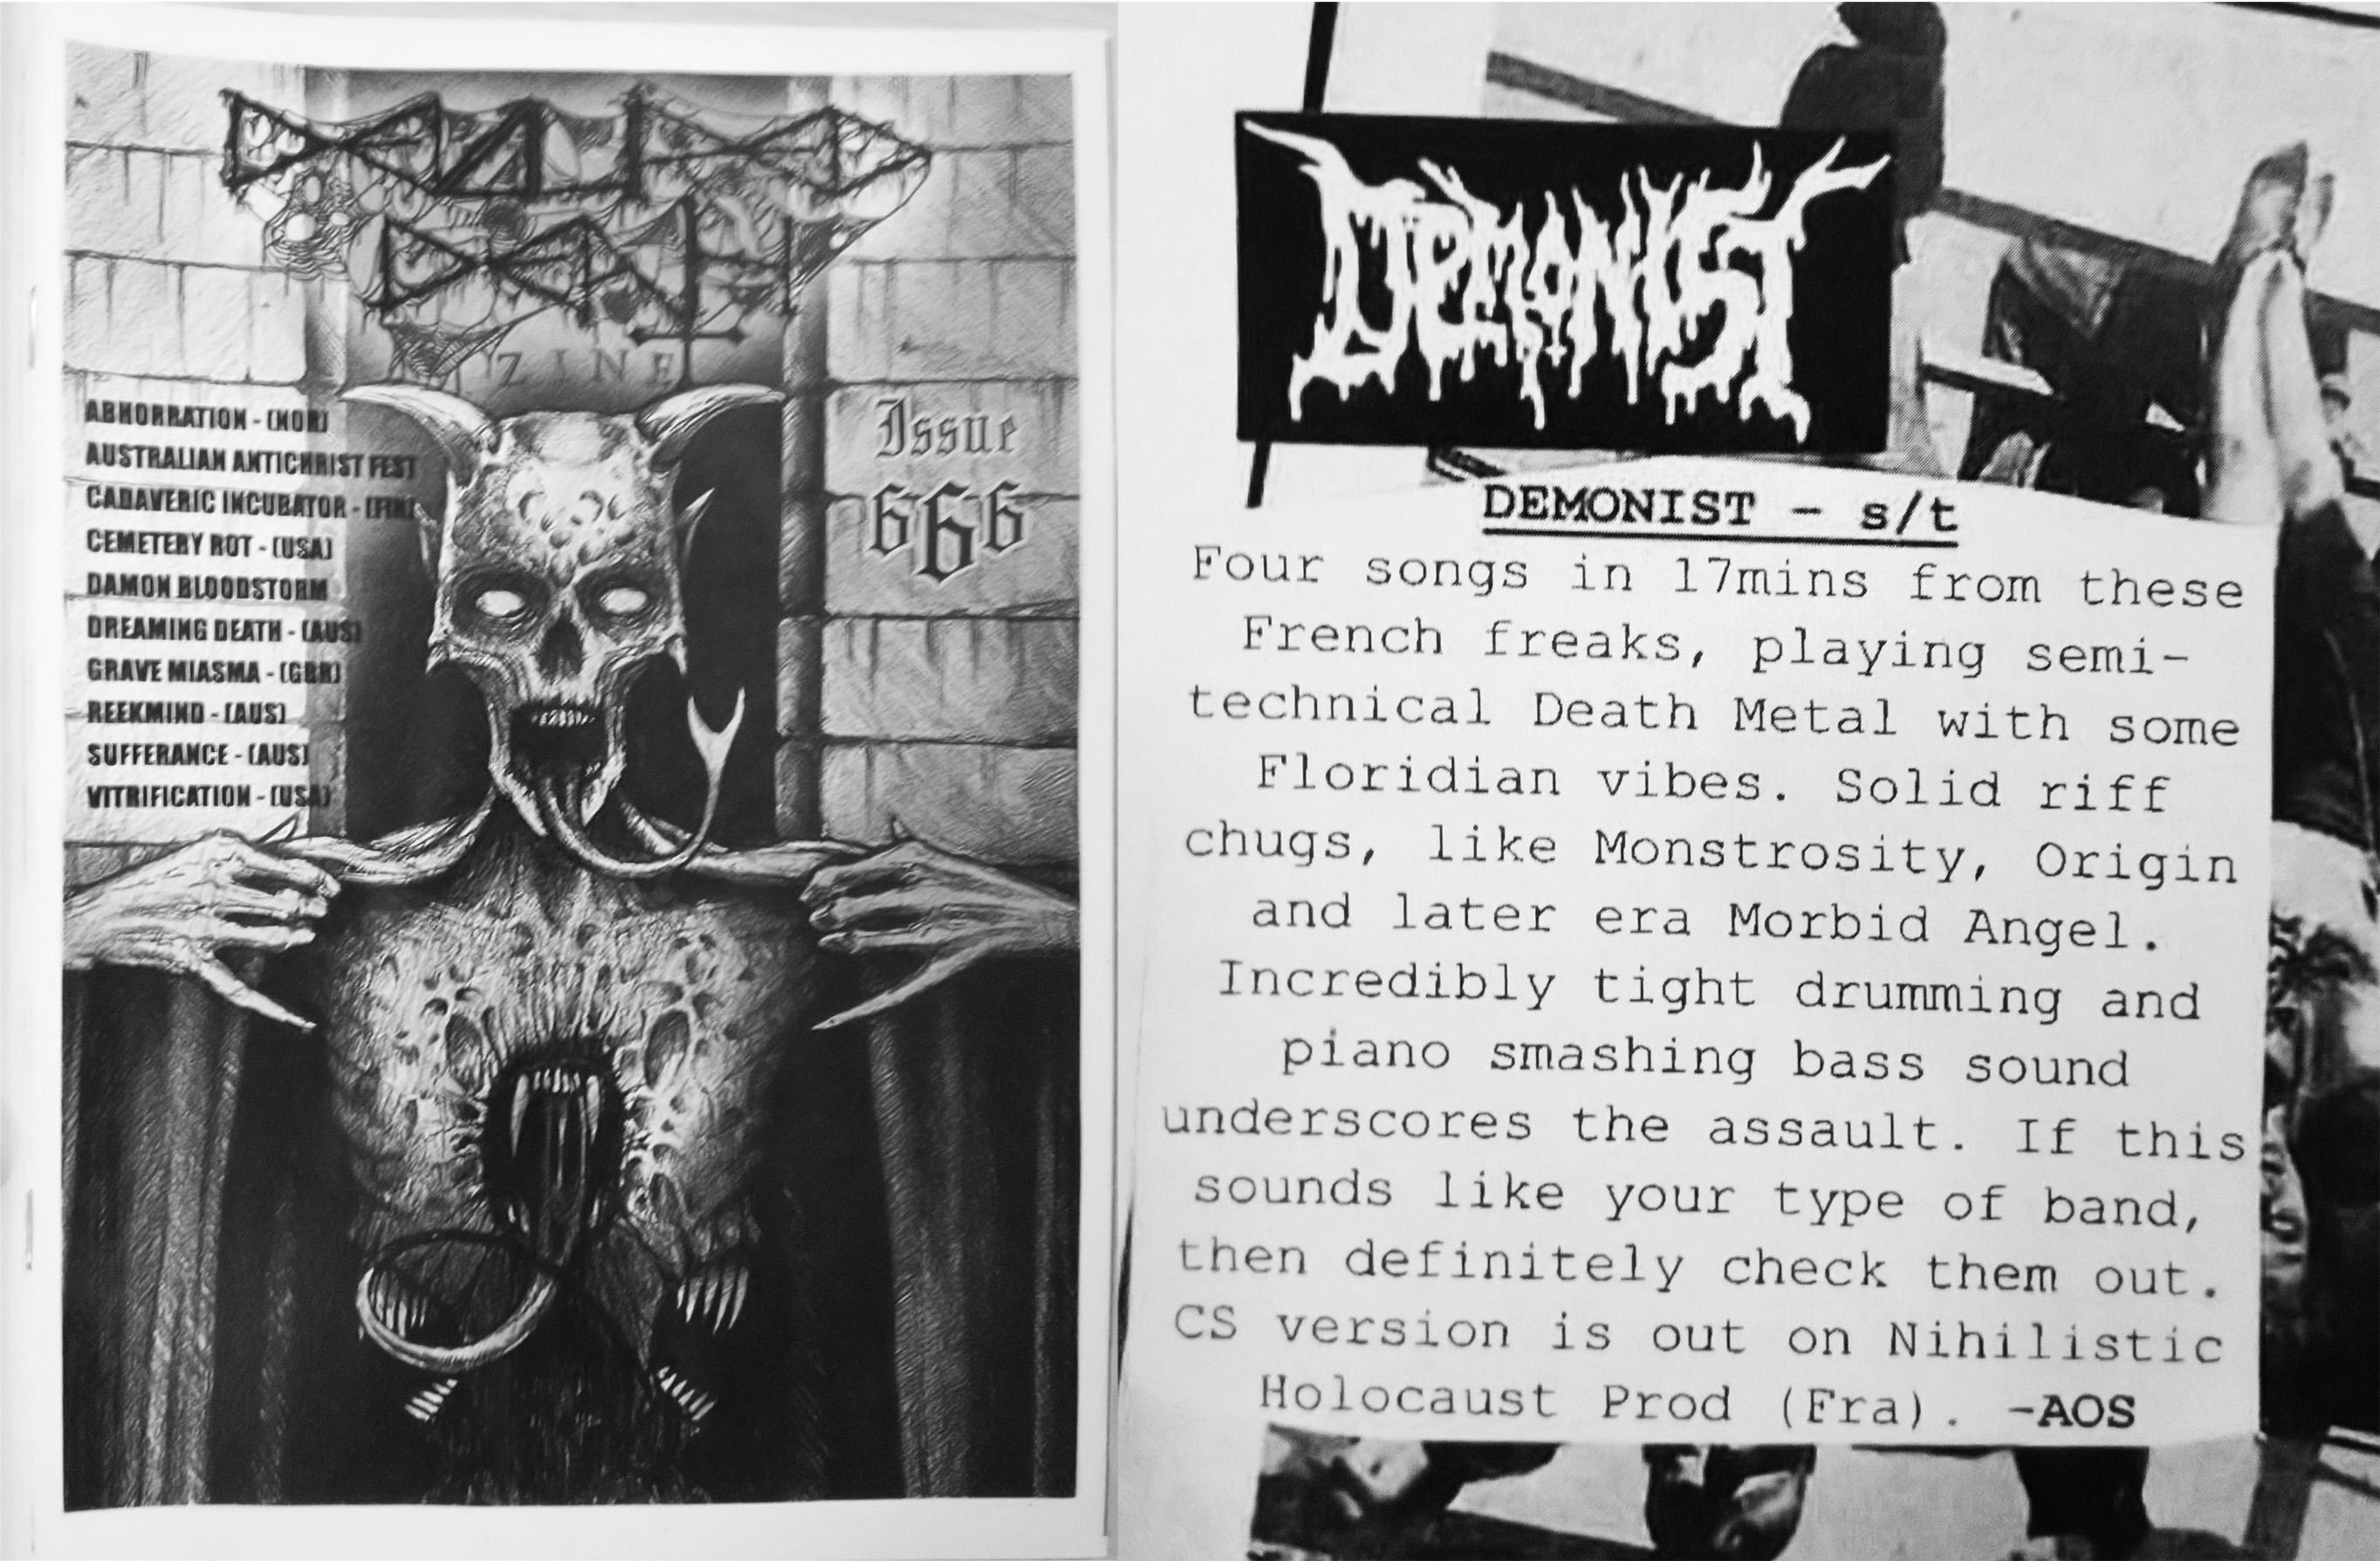 ZINE
Issue
666
ABHORRATION - (NOR)
AUSTRALIAN ANTICHRIST FEST
CADAVERIC INCUBATOR - (FIN)
CEMETERY ROT - (USA)
DAMON BLOODSTORM
DREAMING DEATH - (AUS)
GRAVE MIASMA - (GBR)
REEKMIND - (AUS)
SUFFERANCE - (AUS)
VITRIFICATION - (USA)
DEMONIST
DEMONIST - s/t
Four songs in 17mins from these
French freaks, playing semi-
technical Death Metal with some
Floridian vibes. Solid riff
chugs, like Monstrosity, Origin
and later era Morbid Angel.
Incredibly tight drumming and
piano smashing bass sound
underscores the assault. If this
sounds like your type of band,
then definitely check them out.
CS version is out on Nihilistic
Holocaust Prod (Fra). -AOS